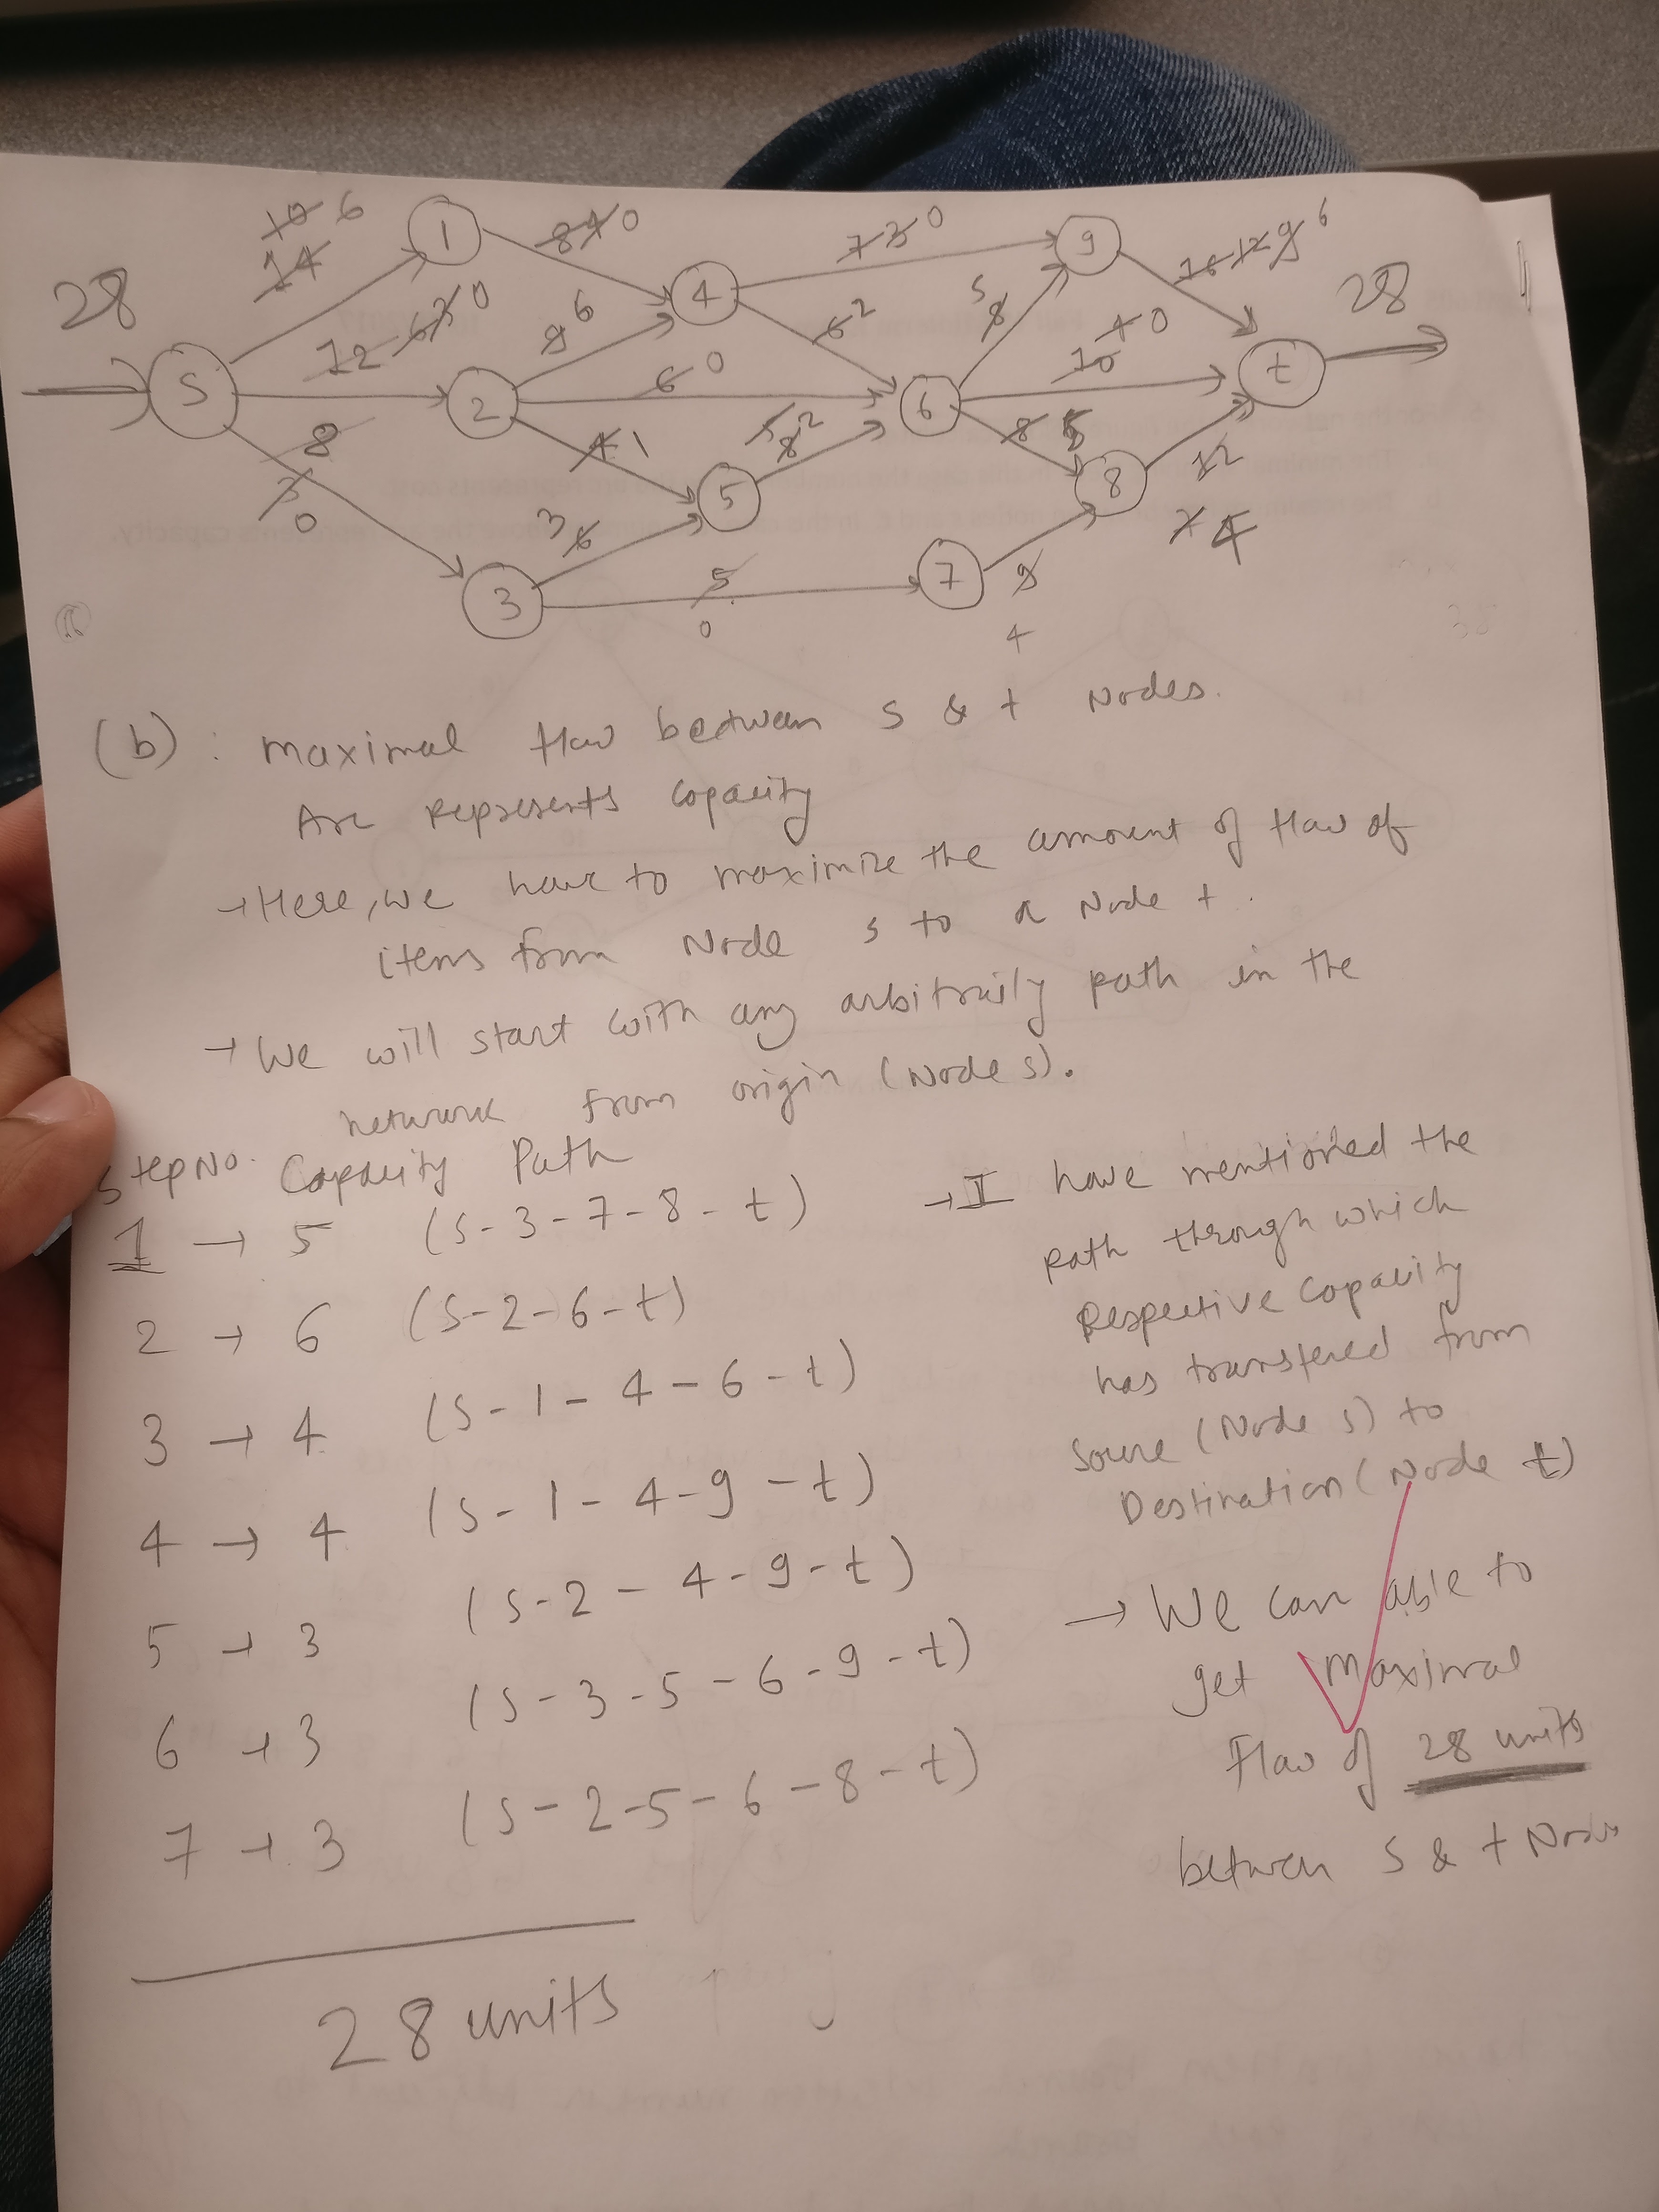 10 6
14
1
8 4 0
7 3 0
9
16 12 9 6
28
28
12 6 3 0
9 6
4
6 2
5
8
10 4 0
S
2
6 0
6
t
8
3
0
4 1
5
8 2
8 5
12
7 4
5
8
3 6
7
9
4
3
5
0
(b) : Maximal flow between s & t Nodes.
Arc represents Capacity
→ Here, we have to maximize the amount of flow of
items from Node s to a Node t.
→ We will start with any arbitraily path in the
network from origin (Node s).
Step No. Capacity Path
1 → 5 (S-3-7-8-t)
2 → 6 (S-2-6-t)
3 → 4 (S-1-4-6-t)
4 → 4 (S-1-4-9-t)
5 → 3 (S-2-4-9-t)
6 → 3 (S-3-5-6-9-t)
7 → 3 (S-2-5-6-8-t)
28 units
→ I have mentioned the
path through which
Respective Capacity
has transfered from
Source (Node s) to
Destination (Node t)
→ We can able to
get Maximal
Flow of 28 units
between s & t Nodes